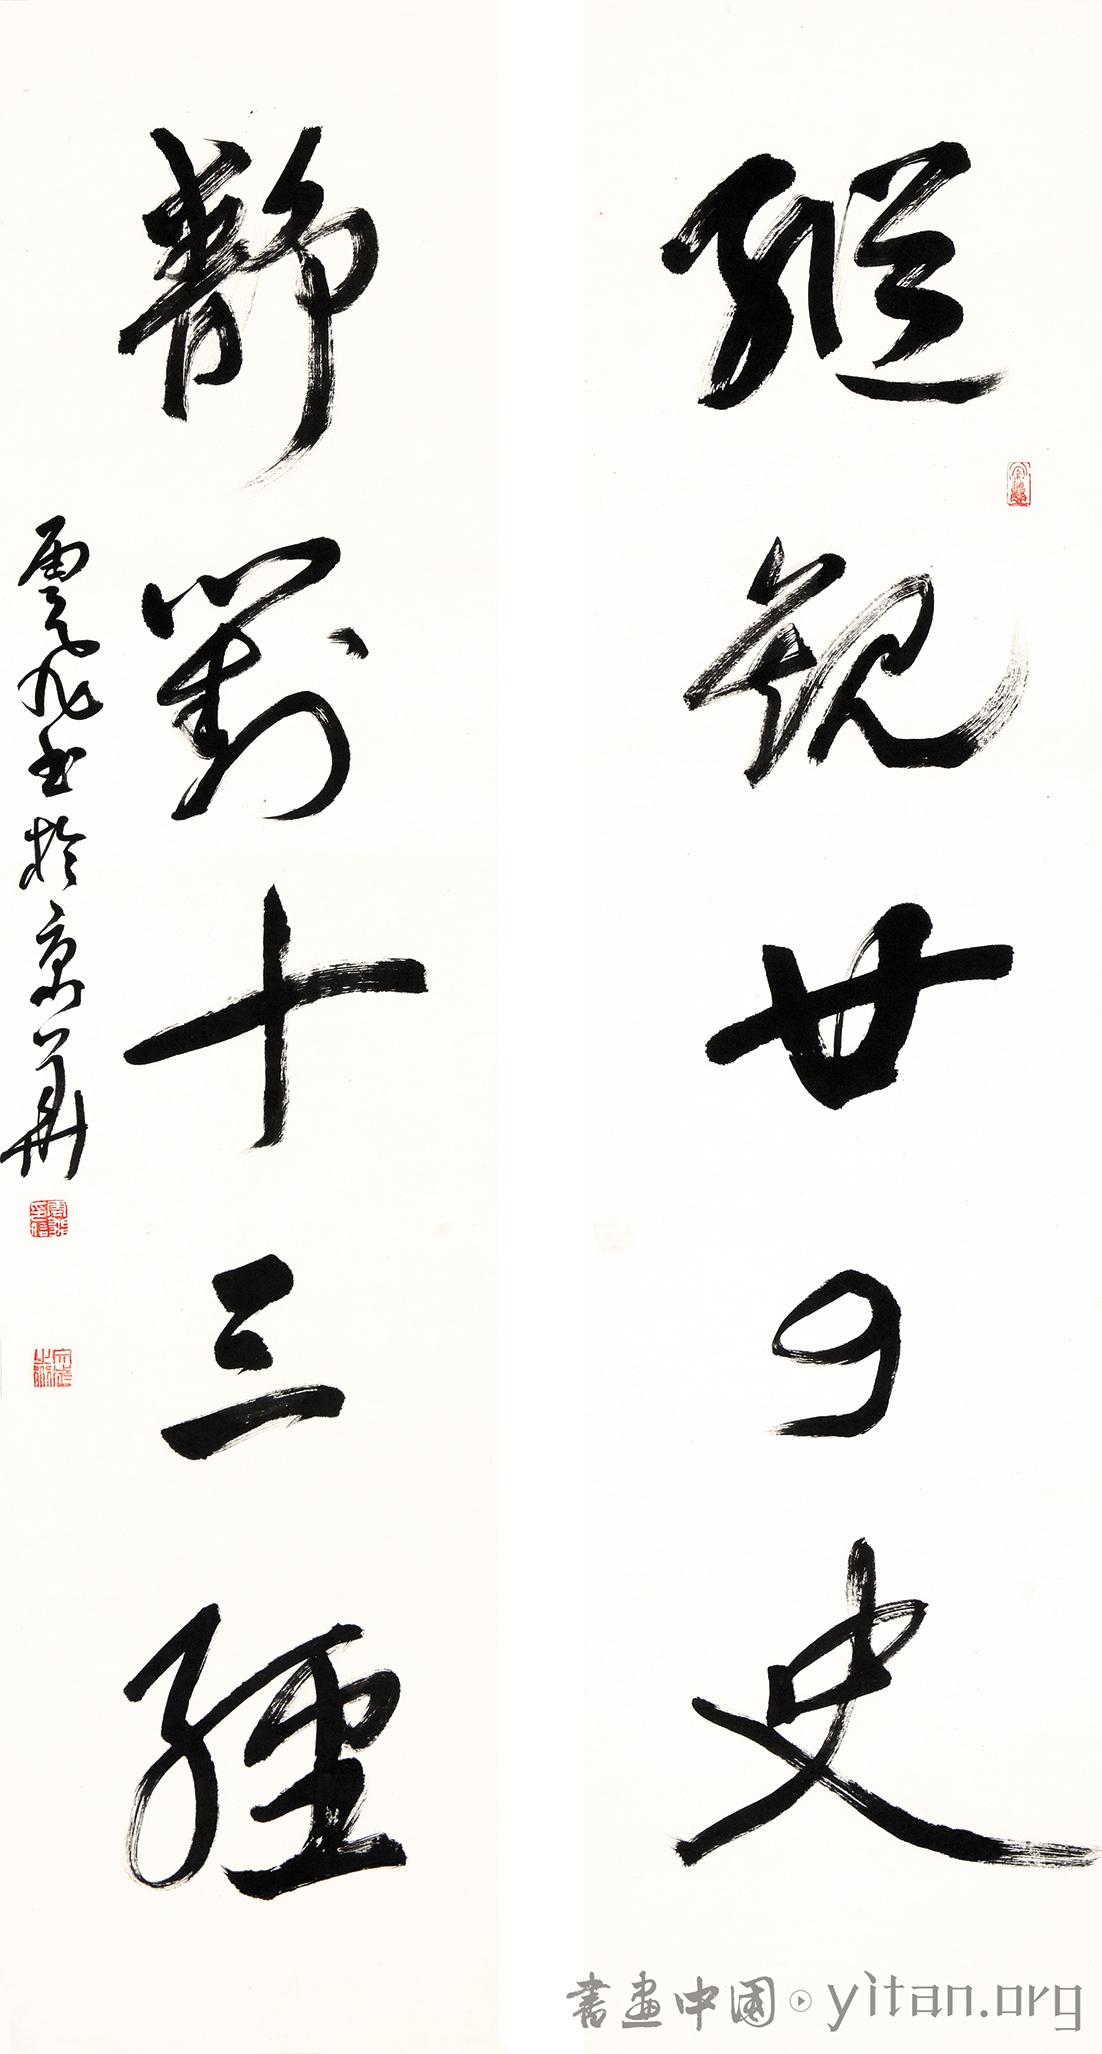 縱觀廿四史
靜對十三經
雲飛書於京華
書畫中國 yitan.org